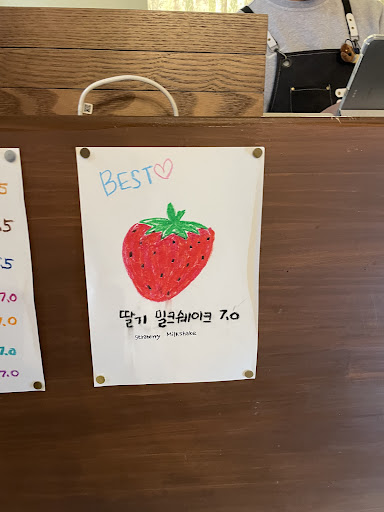 5
.5
.5
7.0
7.0
7.0
7.0
BEST♡
딸기 밀크쉐이크 7.0
Strawberry Milkshake